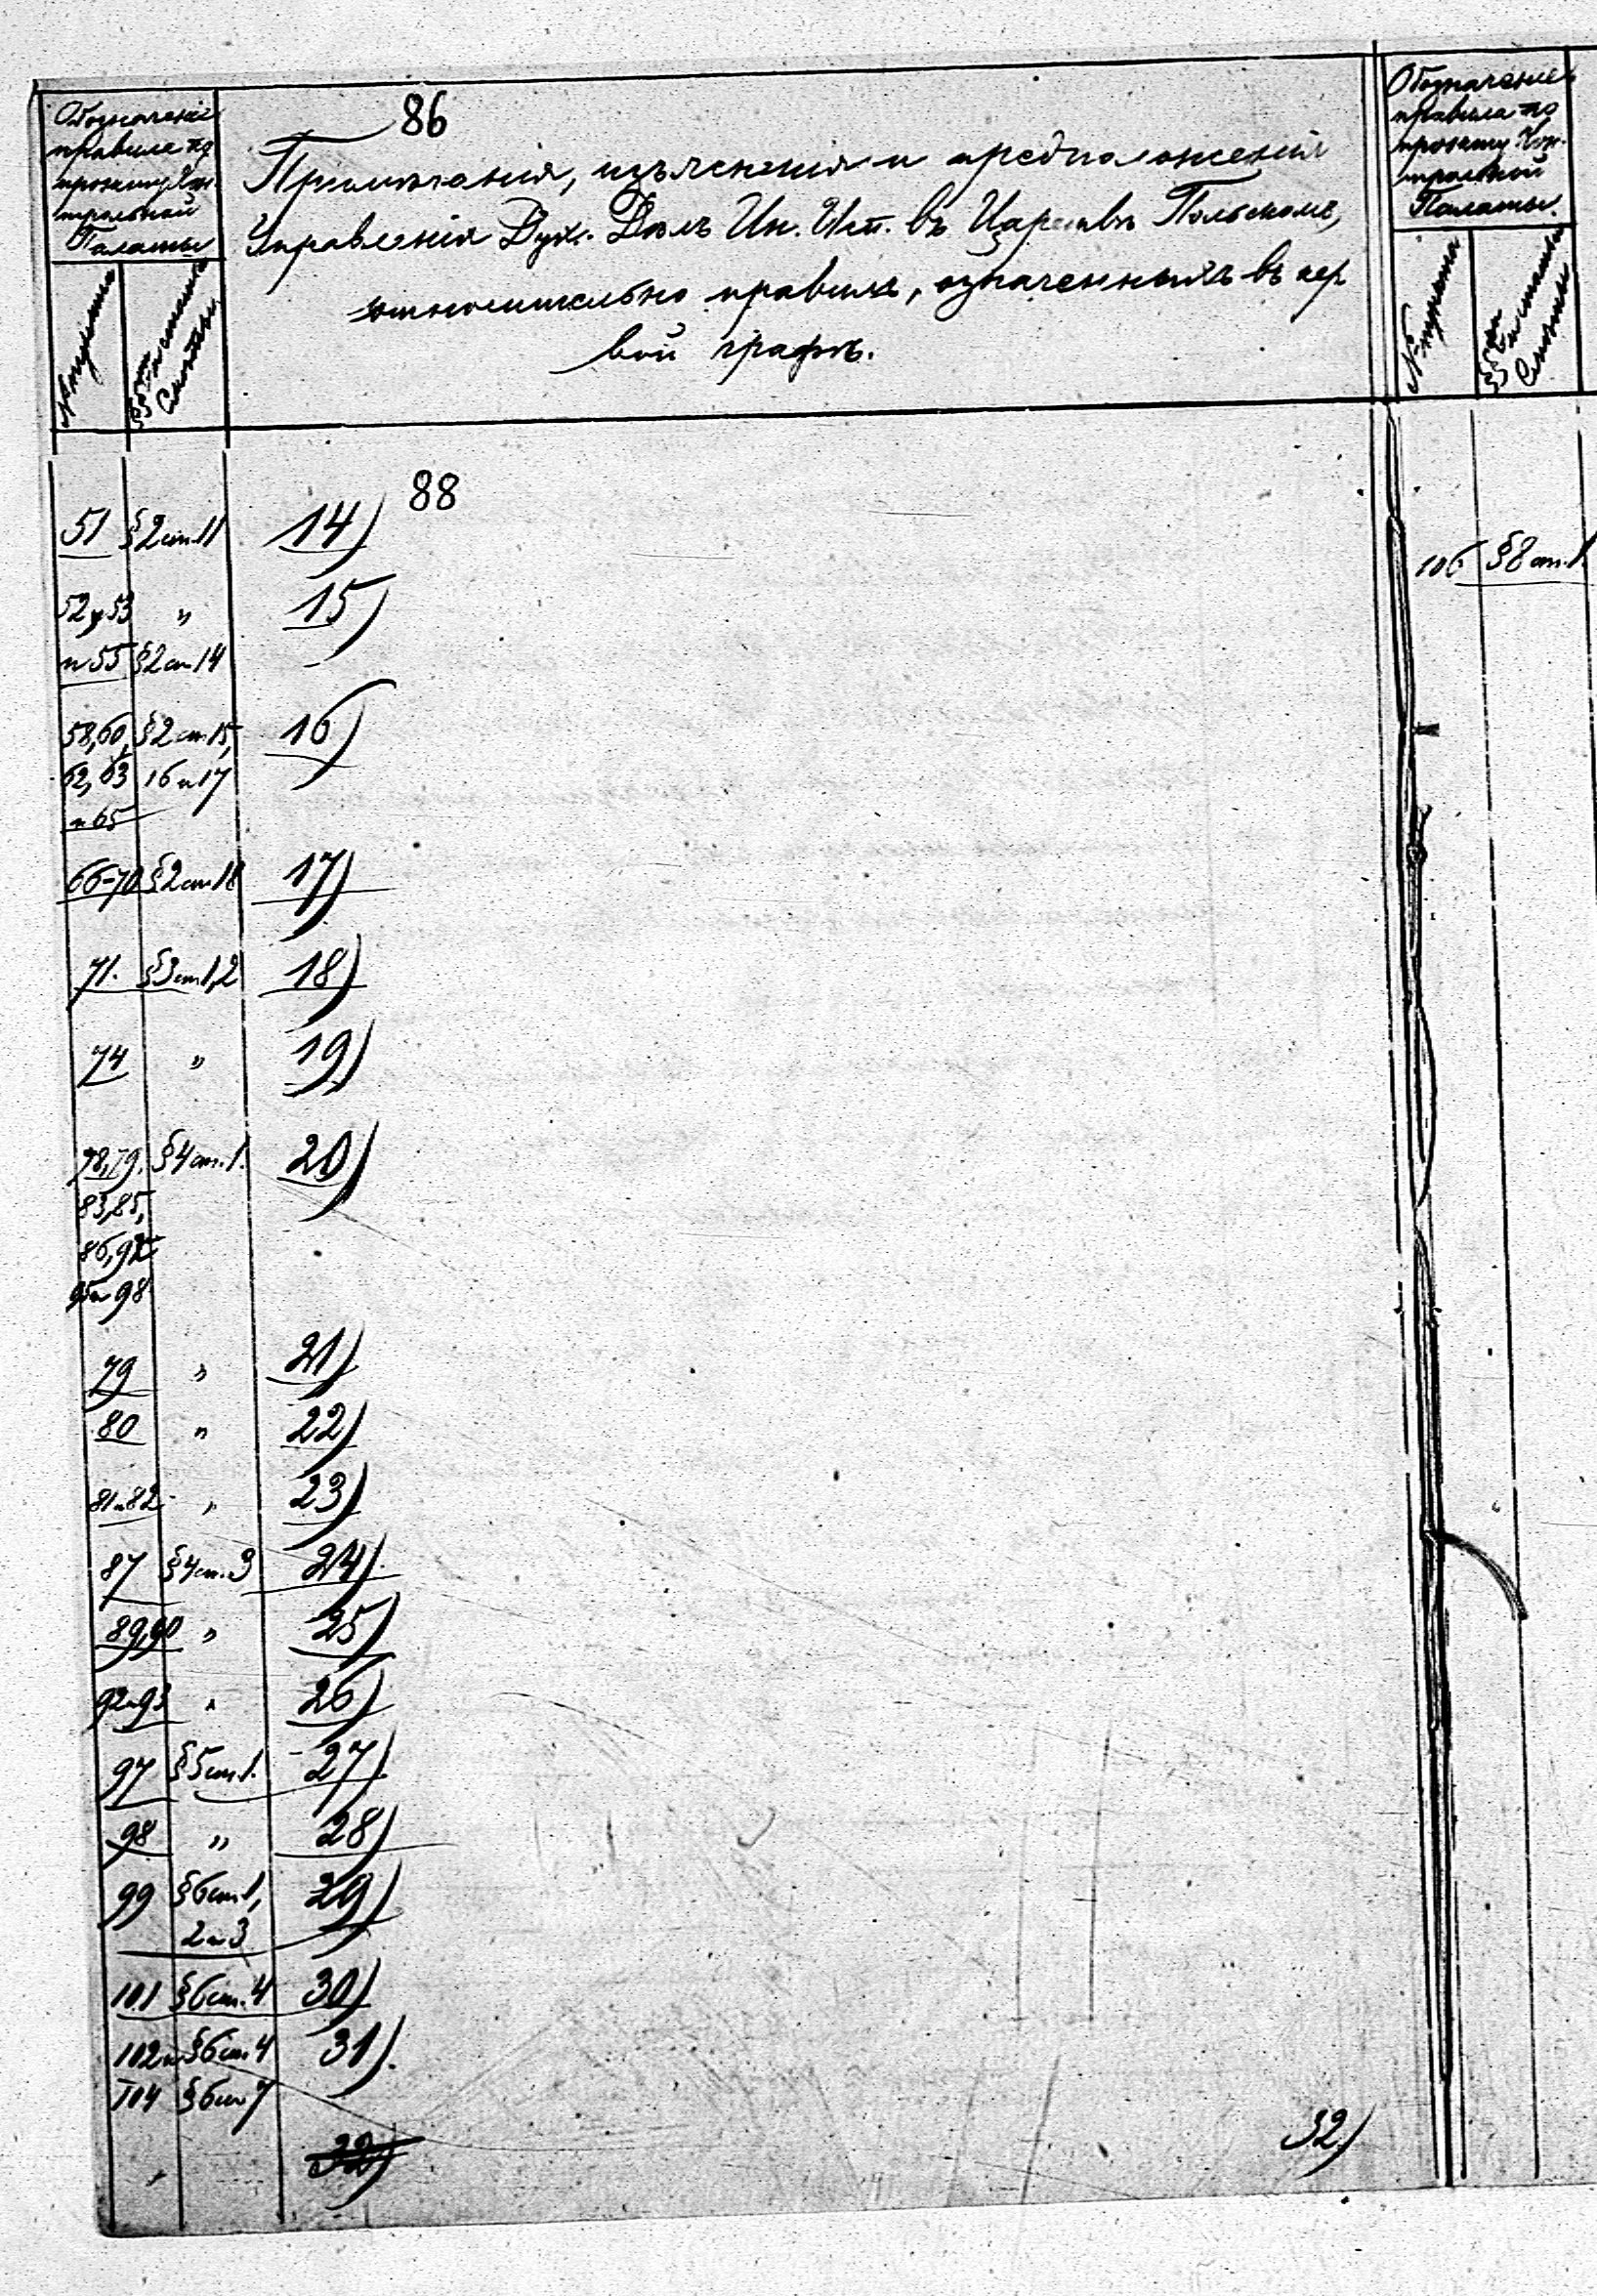 Обозначеніе
правила по
проекту Кон-
трольной
Палаты
№ пункта
§§ и статьи
Смѣты
86
Примѣчанія, изъясненія и предположенія
Управленія Дух. Дѣлъ Ин. Исп. въ Царствѣ Польскомъ,
относительно правилъ, означенныхъ въ пер
вой графѣ.
88
51 §2 ст. 11 14)
52, 53 " 15)
и 55 §2 ст 14
58, 60, §2 ст. 15, 16)
62, 63 16 и 17
и 65
66-70 §2 ст 18 17)
71. §3 ст 1, 2 18)
74 " 19)
78, 79. §4 ст. 1. 20)
83, 85,
86, 92
95 и 98
79 " 21)
80 " 22)
81 и 82 " 23)
87 §4 ст. 3 24)
89, 90 " 25)
92 и 93 " 26)
97 §5 ст. 1. 27)
98 " 28)
99 §6 ст 1, 29)
2 и 3
101 §6 ст. 4 30)
102 и §6 ст. 4 31).
104 §6 ст 7
32)
32)
Обозначеніе
правила по
проекту Кон-
трольной
Палаты.
№ пункта
§§ и статьи
Смѣты
106 §8 ст. 1.